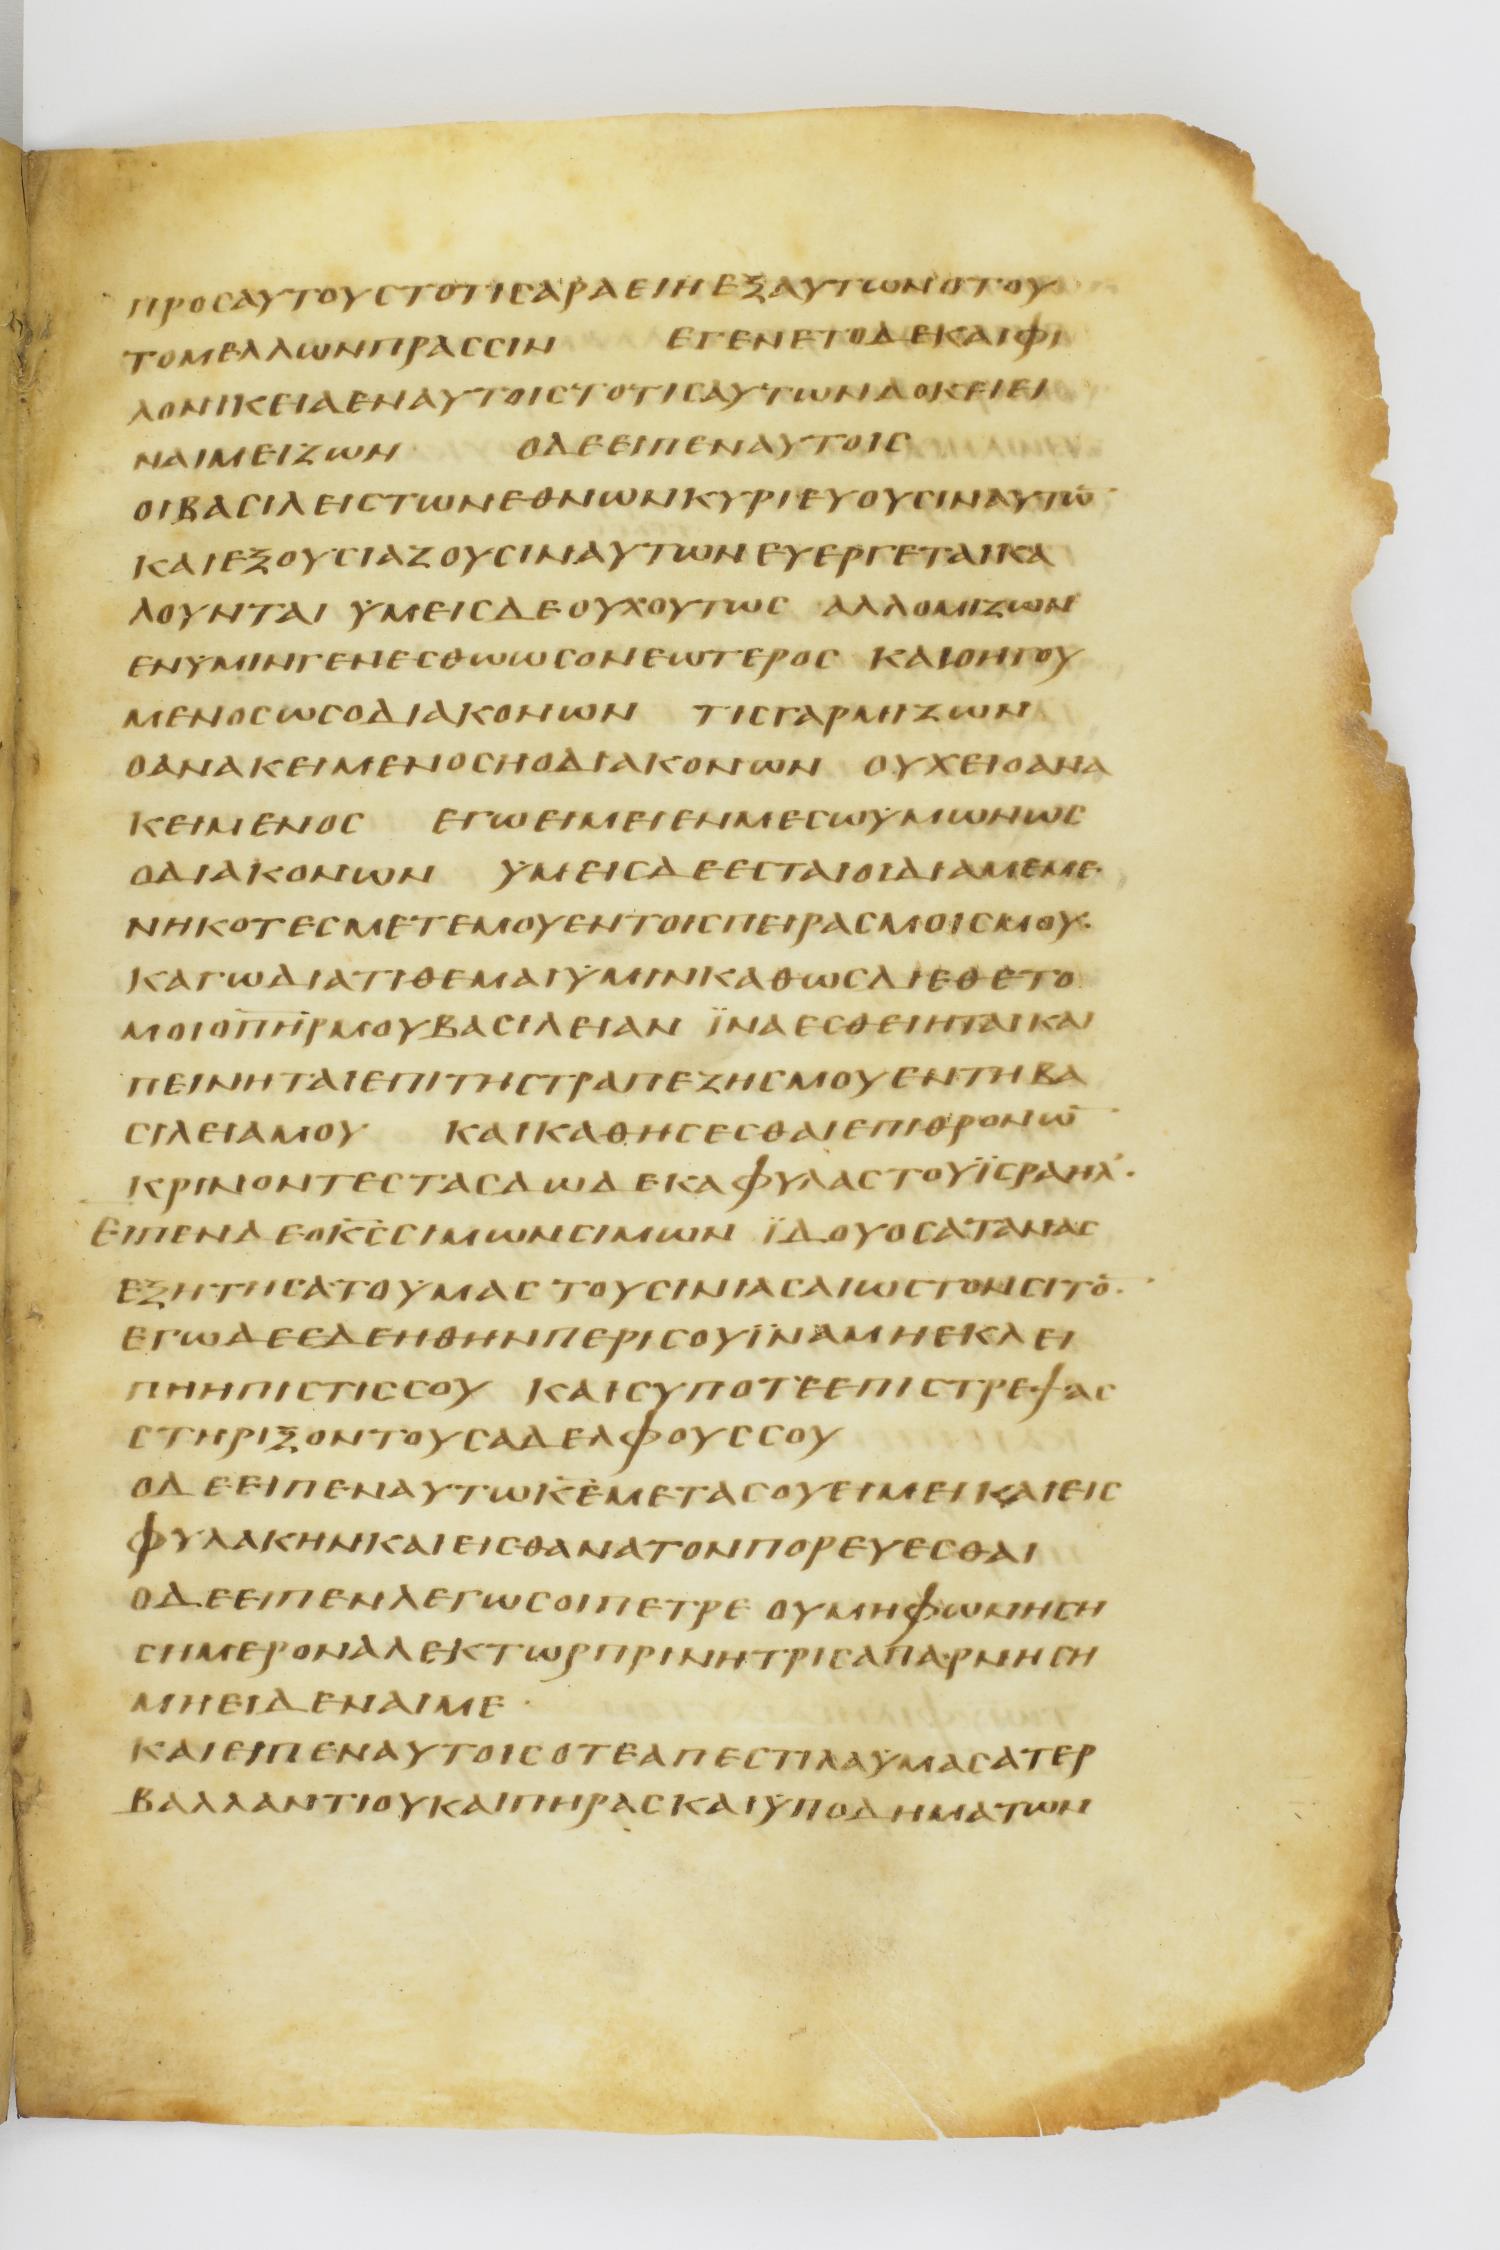 ΠΡΟCΑΥΤΟΥCΤΟΤΙCΑΡΑΕΙΗΕΞΑΥΤΩΝΟΤΟΥ
ΤΟΜΕΛΛΩΝΠΡΑCCΙΝ ΕΓΕΝΕΤΟΔΕΚΑΙΦΙ
ΛΟΝΙΚΕΙΑΕΝΑΥΤΟΙCΤΟΤΙCΑΥΤΩΝΔΟΚΕΙΕΙ
ΝΑΙΜΕΙΖΩΝ ΟΔΕΕΙΠΕΝΑΥΤΟΙC
ΟΙΒΑCΙΛΕΙCΤΩΝΕΘΝΩΝΚΥΡΙΕΥΟΥCΙΝΑΥΤΩ̅
ΚΑΙΕΞΟΥCΙΑΖΟΥCΙΝΑΥΤΩΝΕΥΕΡΓΕΤΑΙΚΑ
ΛΟΥΝΤΑΙ ΫΜΕΙCΔΕΟΥΧΟΥΤΩC ΑΛΛΟΜΙΖΩΝ
ΕΝΫΜΙΝΓΕΝΕCΘΩΩCΟΝΕΩΤΕΡΟC ΚΑΙΟΗΓΟΥ
ΜΕΝΟCΩCΟΔΙΑΚΟΝΩΝ ΤΙCΓΑΡΜΙΖΩΝ
ΟΑΝΑΚΕΙΜΕΝΟCΗΟΔΙΑΚΟΝΩΝ ΟΥΧΕΙΟΑΝΑ
ΚΕΙΜΕΝΟC ΕΓΩΕΙΜΕΙΕΝΜΕCΩΫΜΩΝΩC
ΟΔΙΑΚΟΝΩΝ ΫΜΕΙCΔΕΕCΤΑΙΟΙΔΙΑΜΕΜΕ
ΝΗΚΟΤΕCΜΕΤΕΜΟΥΕΝΤΟΙCΠΕΙΡΑCΜΟΙCΜΟΥ·
ΚΑΓΩΔΙΑΤΙΘΕΜΑΙΫΜΙΝΚΑΘΩCΔΙΕΘΕΤΟ
ΜΟΙΟΠ̅Η̅Ρ̅ΜΟΥΒΑCΙΛΕΙΑΝ ΪΝΑΕCΘΕΙΗΤΑΙΚΑΙ
ΠΕΙΝΗΤΑΙΕΠΙΤΗCΤΡΑΠΕΖΗCΜΟΥΕΝΤΗΒΑ
CΙΛΕΙΑΜΟΥ ΚΑΙΚΑΘΗCΕCΘΑΙΕΠΙΘΡΟΝΩ̅
ΚΡΙΝΟΝΤΕCΤΑCΔΩΔΕΚΑΦΥΛΑCΤΟΥΪCΡΑΗΛ·
ΕΙΠΕΝΔΕΟΚ̅C̅CΙΜΩΝCΙΜΩΝ ΪΔΟΥΟCΑΤΑΝΑC
ΕΞΗΤΗCΑΤΟΫΜΑC ΤΟΥCΙΝΙΑCΑΙΩCΤΟΝCΙΤΟ̅·
ΕΓΩΔΕΕΔΕΗΘΗΝΠΕΡΙCΟΥΪΝΑΜΗΕΚΛΕΙ
ΠΗΗΠΙCΤΙCCΟΥ ΚΑΙCΥΠΟΤΕΕΠΙCΤΡΕΨΑC
CΤΗΡΙΞΟΝΤΟΥCΑΔΕΛΦΟΥCCΟΥ
ΟΔΕΕΙΠΕΝΑΥΤΩΚ̅Ε̅ΜΕΤΑCΟΥΕΙΜΕΙΚΑΙΕΙC
ΦΥΛΑΚΗΝΚΑΙΕΙCΘΑΝΑΤΟΝΠΟΡΕΥΕCΘΑΙ
ΟΔΕΕΙΠΕΝΛΕΓΩCΟΙΠΕΤΡΕ ΟΥΜΗΦΩΝΗCΗ
CΗΜΕΡΟΝΑΛΕΚΤΩΡΠΡΙΝΗΤΡΙCΑΠΑΡΝΗCΗ
ΜΗΕΙΔΕΝΑΙΜΕ·
ΚΑΙΕΙΠΕΝΑΥΤΟΙCΟΤΕΑΠΕCΤΙΛΑΫΜΑCΑΤΕΡ
ΒΑΛΛΑΝΤΙΟΥΚΑΙΠΗΡΑCΚΑΙΫΠΟΔΗΜΑΤΩΝ